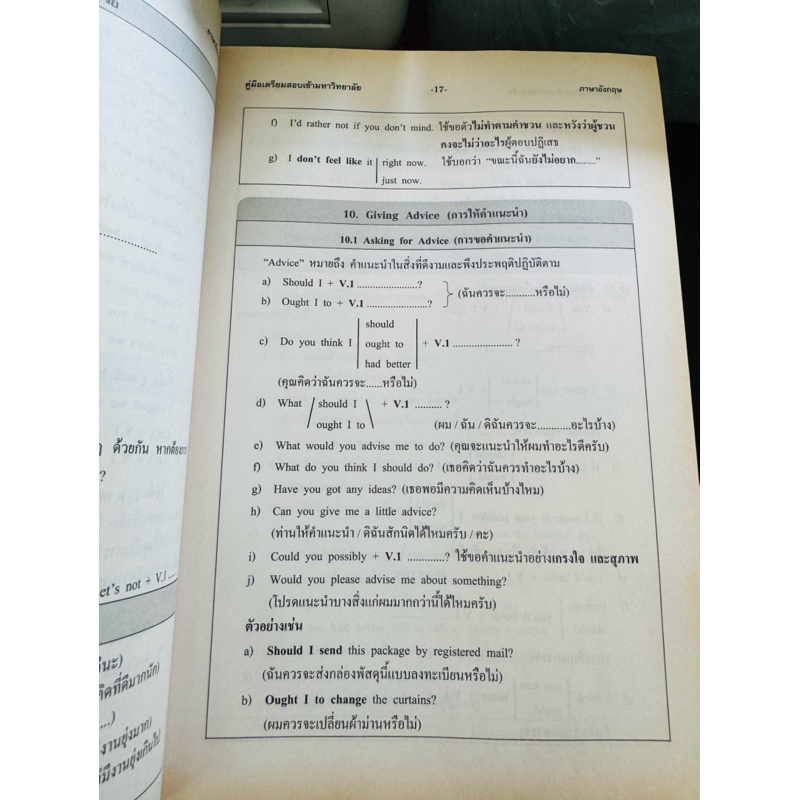 คู่มือเตรียมสอบเข้ามหาวิทยาลัย -17- ภาษาอังกฤษ
f) I'd rather not if you don't mind. ใช้ขอตัวไม่ทำตามคำชวน และหวังว่าผู้ชวน
คงจะไม่ว่าอะไรผู้ตอบปฏิเสธ
g) I don't feel like it right now. ใช้บอกว่า "ขณะนี้ฉันยังไม่อยาก........"
just now.
10. Giving Advice (การให้คำแนะนำ)
10.1 Asking for Advice (การขอคำแนะนำ)
"Advice" หมายถึง คำแนะนำในสิ่งที่ดีงามและพึงประพฤติปฏิบัติตาม
a) Should I + V.1 ......................?
b) Ought I to + V.1 ......................? (ฉันควรจะ..........หรือไม่)
should
c) Do you think I ought to + V.1 ..................... ?
had better
(คุณคิดว่าฉันควรจะ......หรือไม่)
d) What should I + V.1 .......... ?
ought I to (ผม / ฉัน / ดิฉันควรจะ............อะไรบ้าง)
e) What would you advise me to do? (คุณจะแนะนำให้ผมทำอะไรดีครับ)
f) What do you think I should do? (เธอคิดว่าฉันควรทำอะไรบ้าง)
g) Have you got any ideas? (เธอพอมีความคิดเห็นบ้างไหม)
h) Can you give me a little advice?
(ท่านให้คำแนะนำ / ดิฉันสักนิดได้ไหมครับ / คะ)
i) Could you possibly + V.1 .............? ใช้ขอคำแนะนำอย่างเกรงใจ และสุภาพ
j) Would you please advise me about something?
(โปรดแนะนำบางสิ่งแก่ผมมากกว่านี้ได้ไหมครับ)
ตัวอย่างเช่น
a) Should I send this package by registered mail?
(ฉันควรจะส่งกล่องพัสดุนี้แบบลงทะเบียนหรือไม่)
b) Ought I to change the curtains?
(ผมควรจะเปลี่ยนผ้าม่านหรือไม่)
ด้วยกัน หากต้องการ
?
et's not + V.1 ....
คิดที่ดีมากนัก)
...)
งานยุ่งมาก)
มีงานยุ่งเกินไป